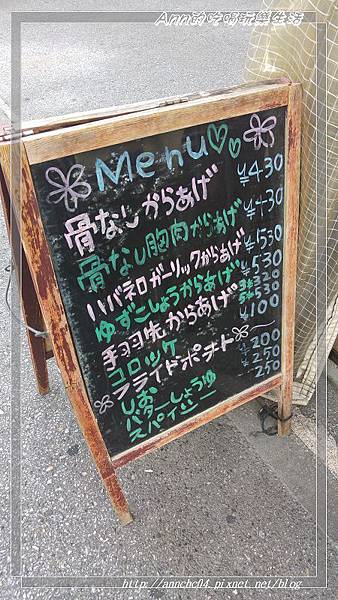 Ann的吃喝玩樂生活
Menu
骨なしからあげ ¥430
骨なし胸肉からあげ ¥430
ハバネロガーリックからあげ ¥530
ゆずこしょうからあげ ¥530
手羽先からあげ 3本320
5本530
コロッケ ¥100
フライドポテト
しお 200
バターしょうゆ 250
スパイシー 250
http://annchc04.pixnet.net/blog